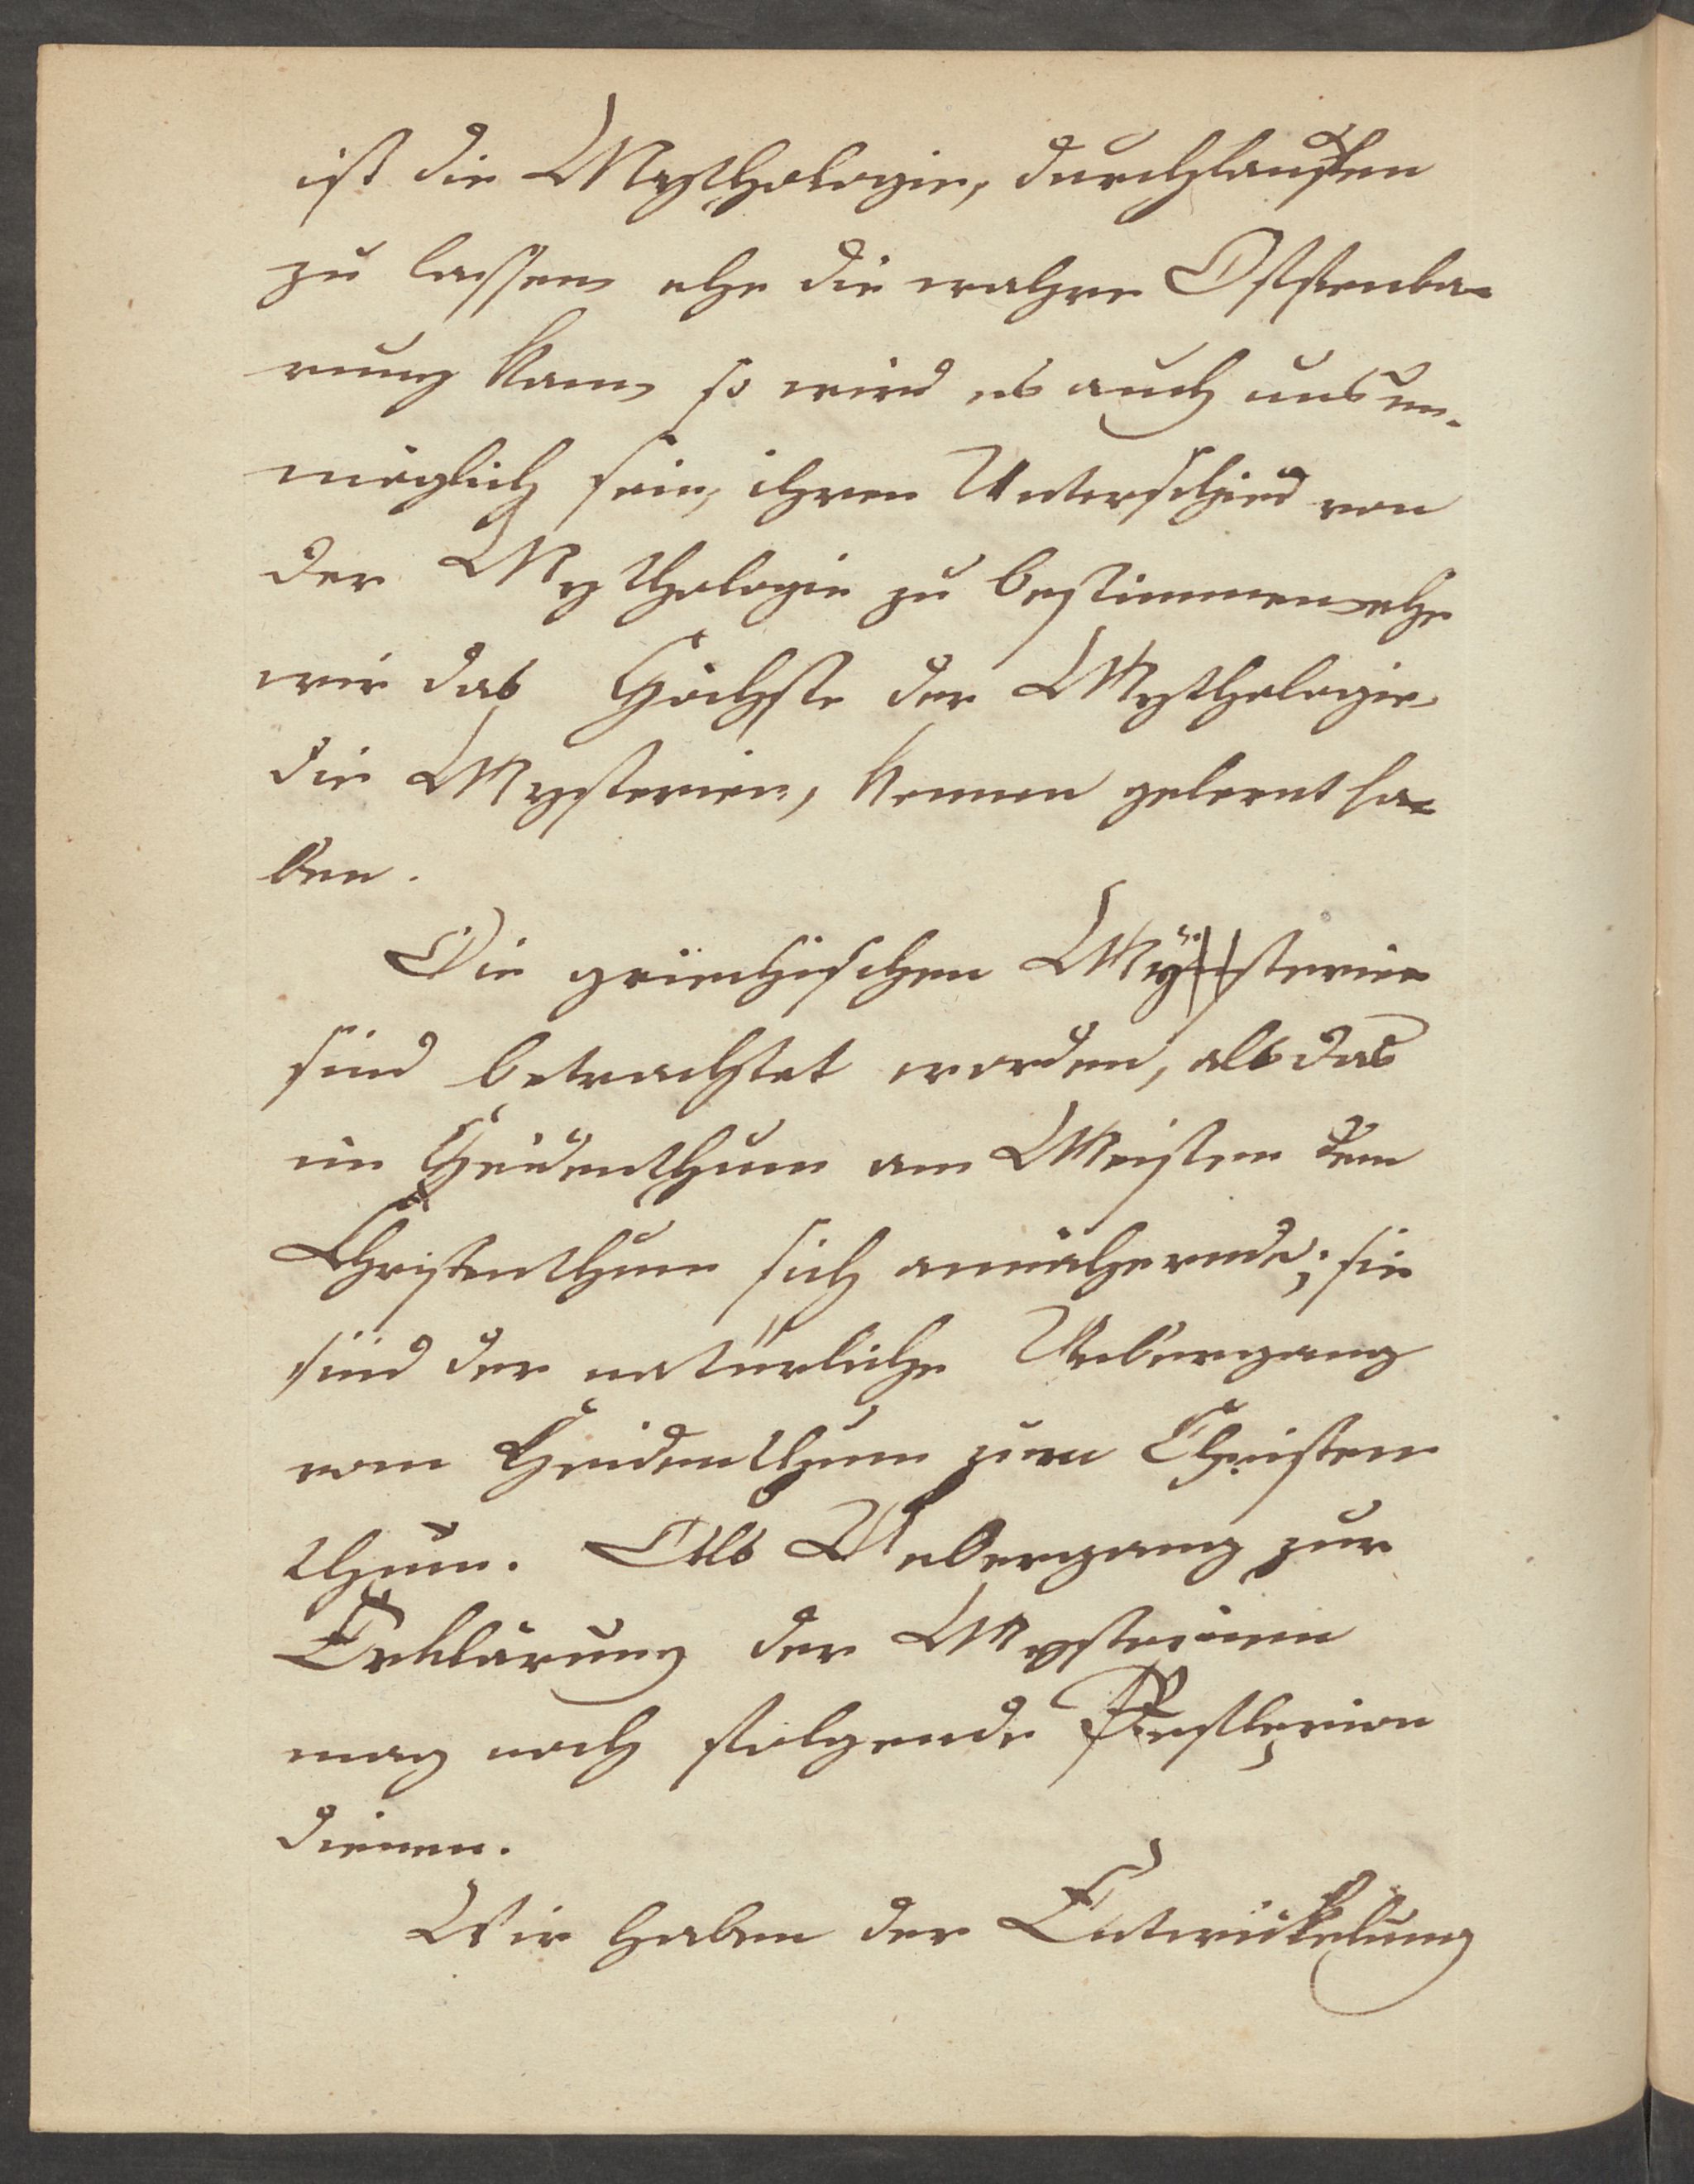 ist die Mythologie, durchlaufen
zu lassen ehe die wahre Offenba-
rung kam, so wird es auch uns un-
möglich sein, ihren Unterschied von
der Mythologie zu bestimmen ehe
wir das Höchste der Mythologie,
die Mysterien, kennen gelernt ha-
ben.
Die griechischen Mysterien
sind betrachtet worden, als das
im Heidenthum am Meisten dem
Christenthum sich annähernde; sie
sind der natürliche Uebergang
vom Heidenthum zum Christen
thum. Als Uebergang zur
Erklärung der Mysterien
mag noch folgende
dienen.
Wir haben der Entwickelung